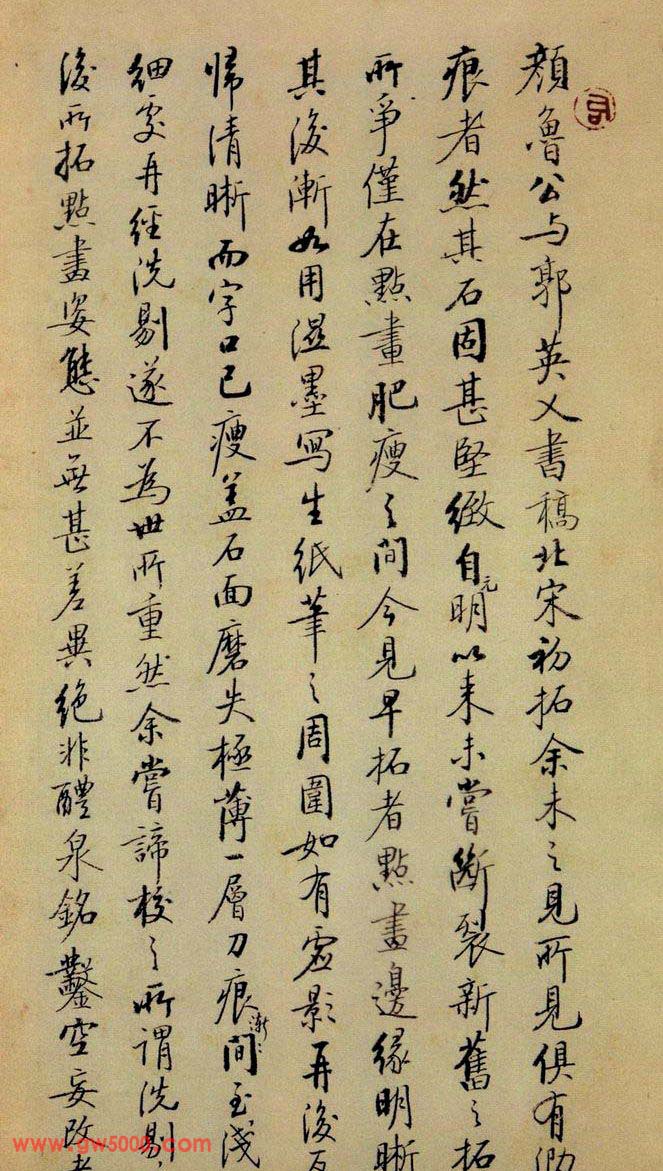 顔魯公与郭英乂書稿北宋初拓余未之見所見俱有泐
痕者然其石固甚堅緻自元明以来未嘗斷裂新舊之拓
所爭僅在點畫肥瘦之間今見早拓者點畫邊緣明晰
其後漸如用濕墨寫生紙筆之周圍如有虛影再後
歸清晰而字口已瘦蓋石面磨失極薄一層刀痕漸漸間至淺
細處再經洗剔遂不為世所重然余嘗諦校之所謂洗剔
後所拓點畫姿態並無甚差異絶非醴泉銘鑿空妄改者
www.gw5000.com